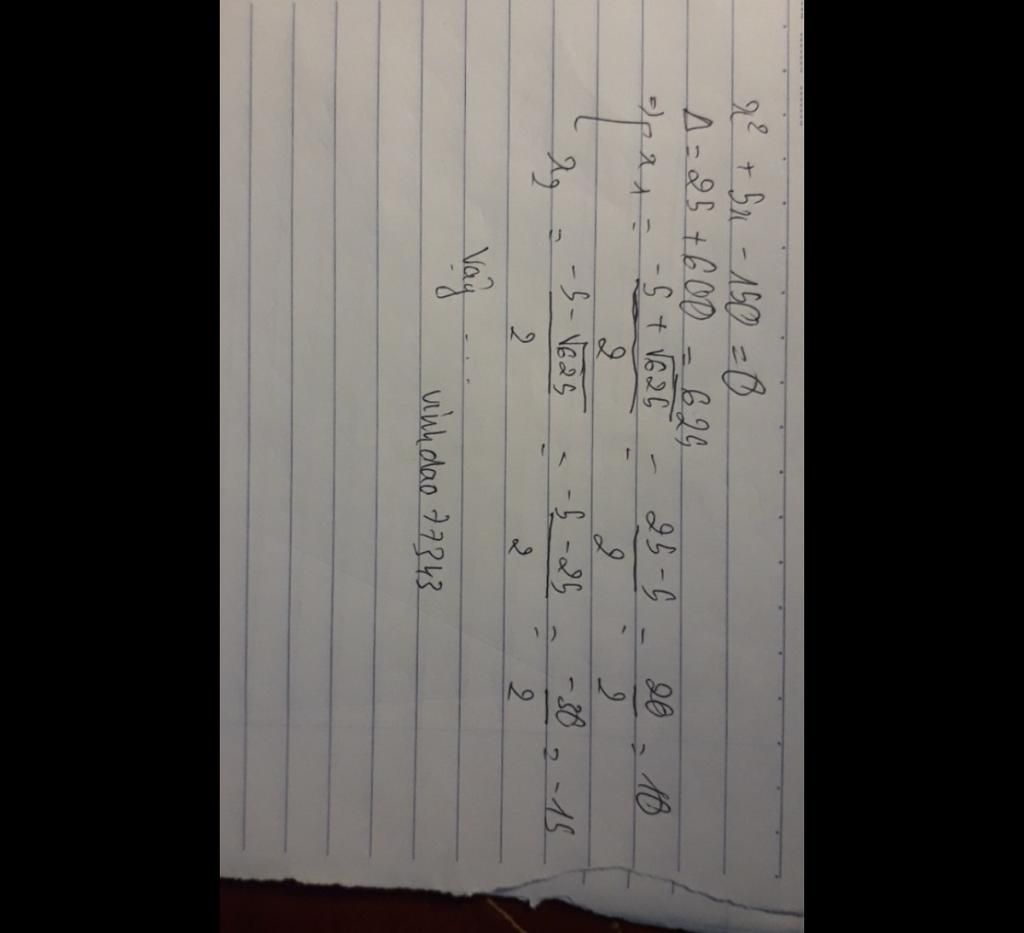 x² + 5x - 150 = 0
Δ = 25 + 600 = 625
=> [ x1 = (-5 + √625)/2 = (25 - 5)/2 = 20/2 = 10
x2 = (-5 - √625)/2 = (-5 - 25)/2 = -30/2 = -15
Vậy ...
vinhdao 77343